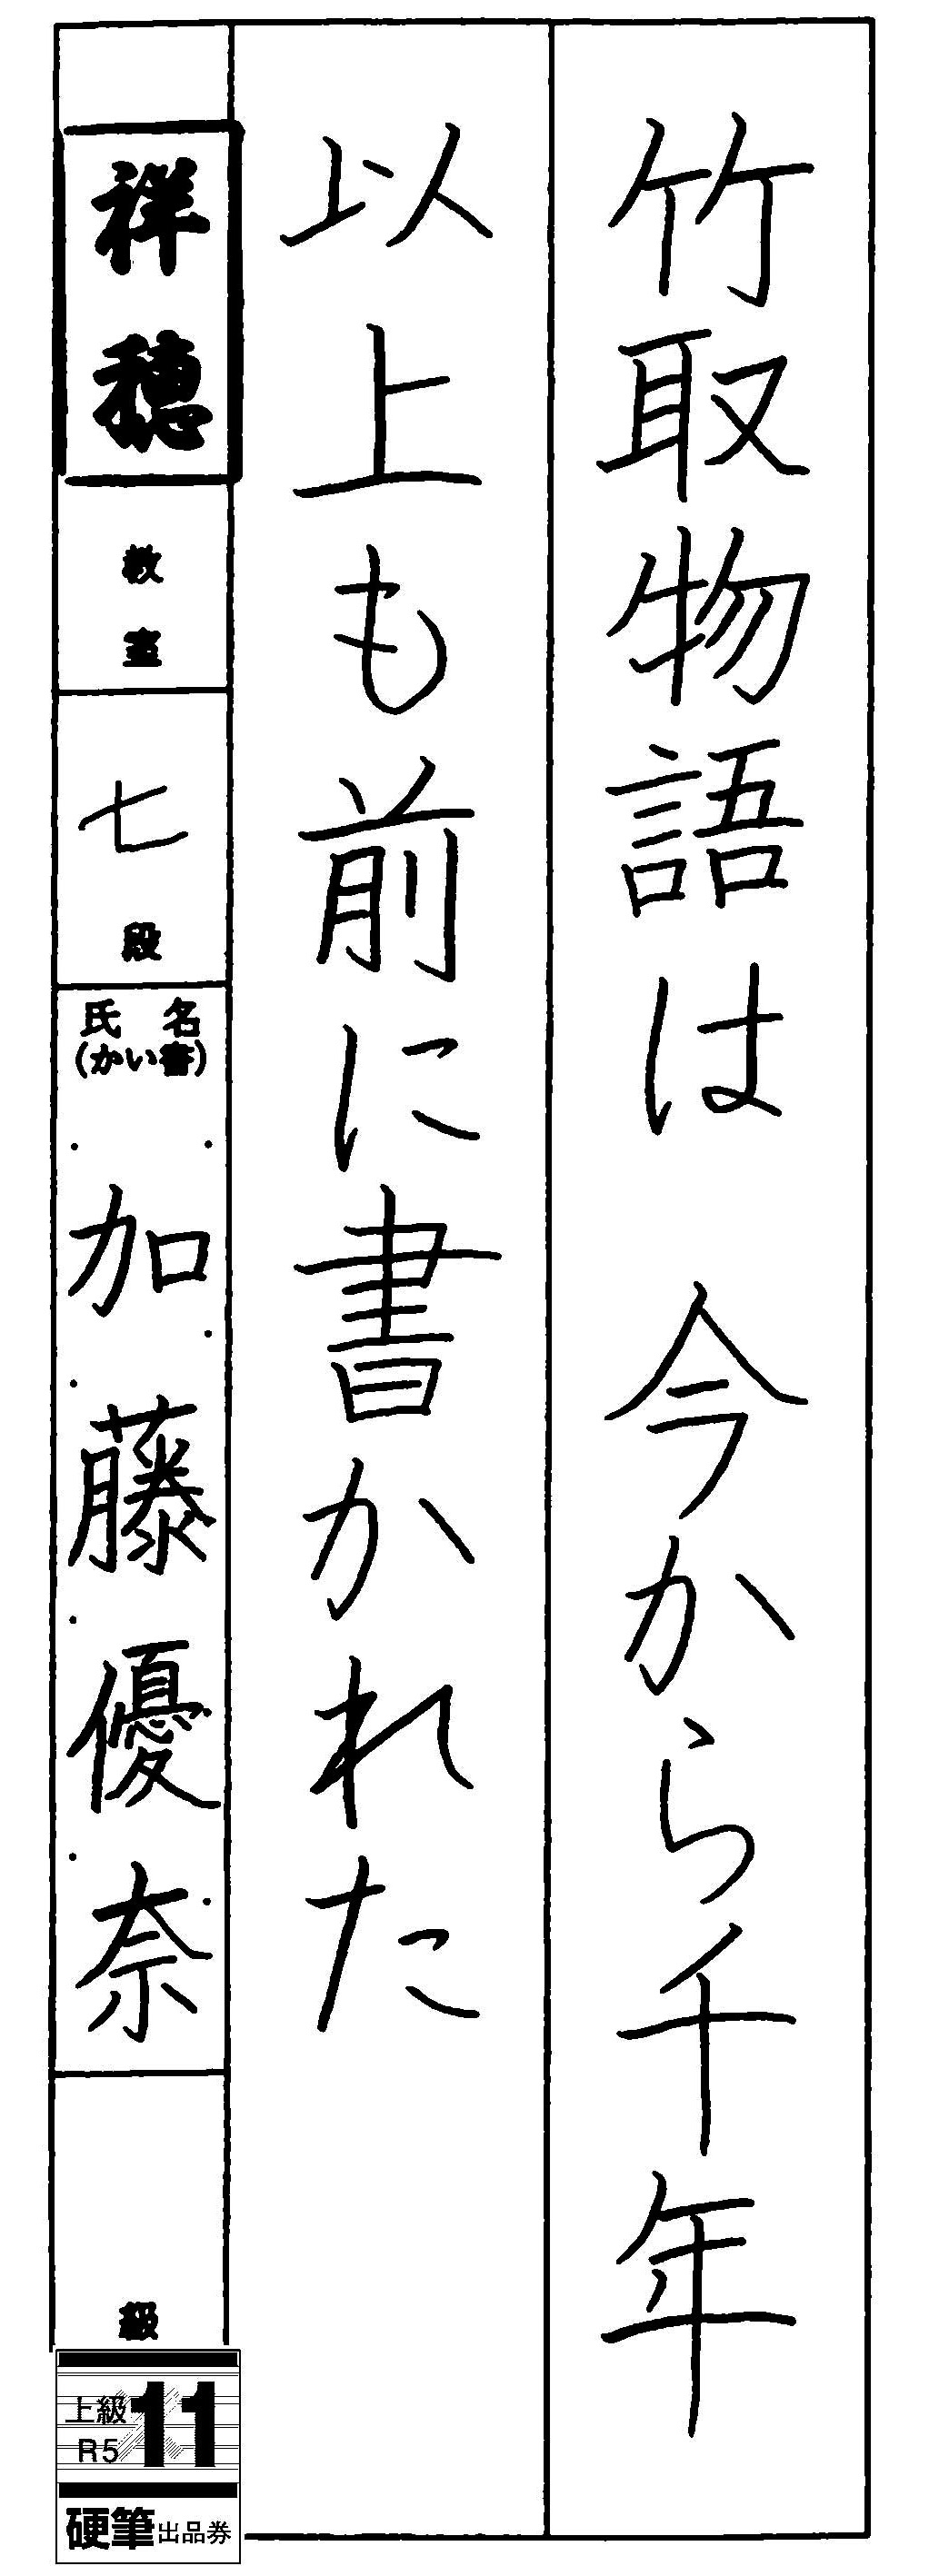 竹取物語は 今から千年
以上も前に書かれた
祥穂
教室
七段
氏名
(かい書)
加藤優奈
級
上級
R5
11
硬筆出品券